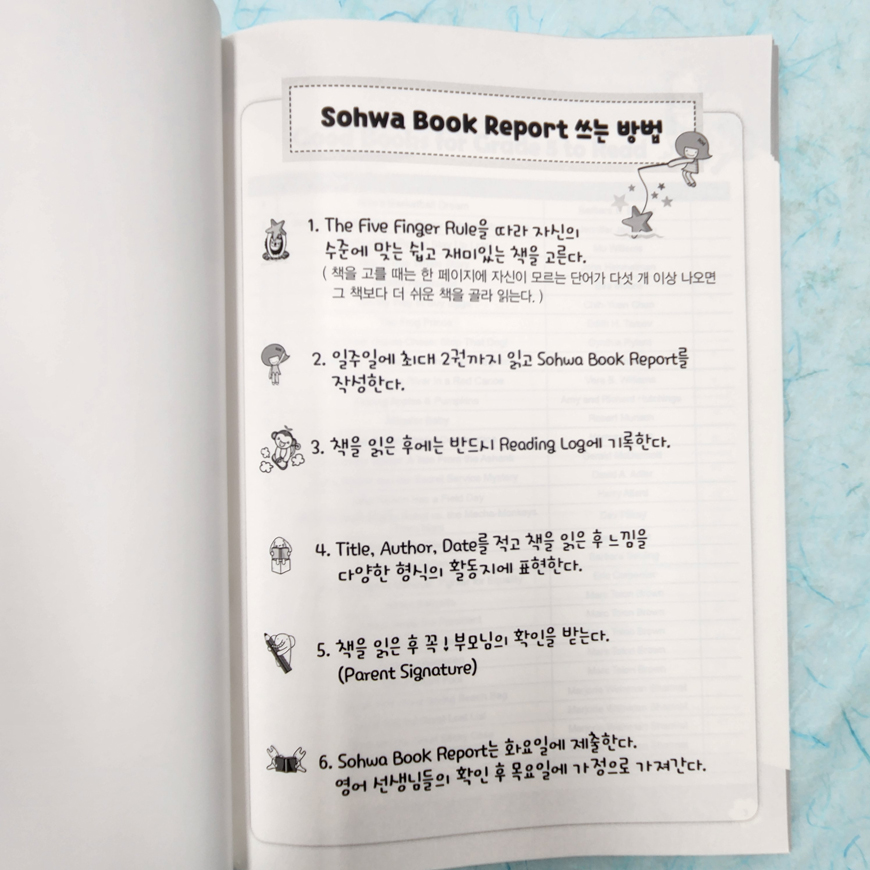 Sohwa Book Report 쓰는 방법
1. The Five Finger Rule을 따라 자신의
수준에 맞는 쉽고 재미있는 책을 고른다.
( 책을 고를 때는 한 페이지에 자신이 모르는 단어가 다섯 개 이상 나오면
그 책보다 더 쉬운 책을 골라 읽는다. )
2. 일주일에 최대 2권까지 읽고 Sohwa Book Report를
작성한다.
3. 책을 읽은 후에는 반드시 Reading Log에 기록한다.
4. Title, Author, Date를 적고 책을 읽은 후 느낌을
다양한 형식의 활동지에 표현한다.
5. 책을 읽은 후 꼭! 부모님의 확인을 받는다.
(Parent Signature)
6. Sohwa Book Report는 화요일에 제출한다.
영어 선생님들의 확인 후 목요일에 가정으로 가져간다.